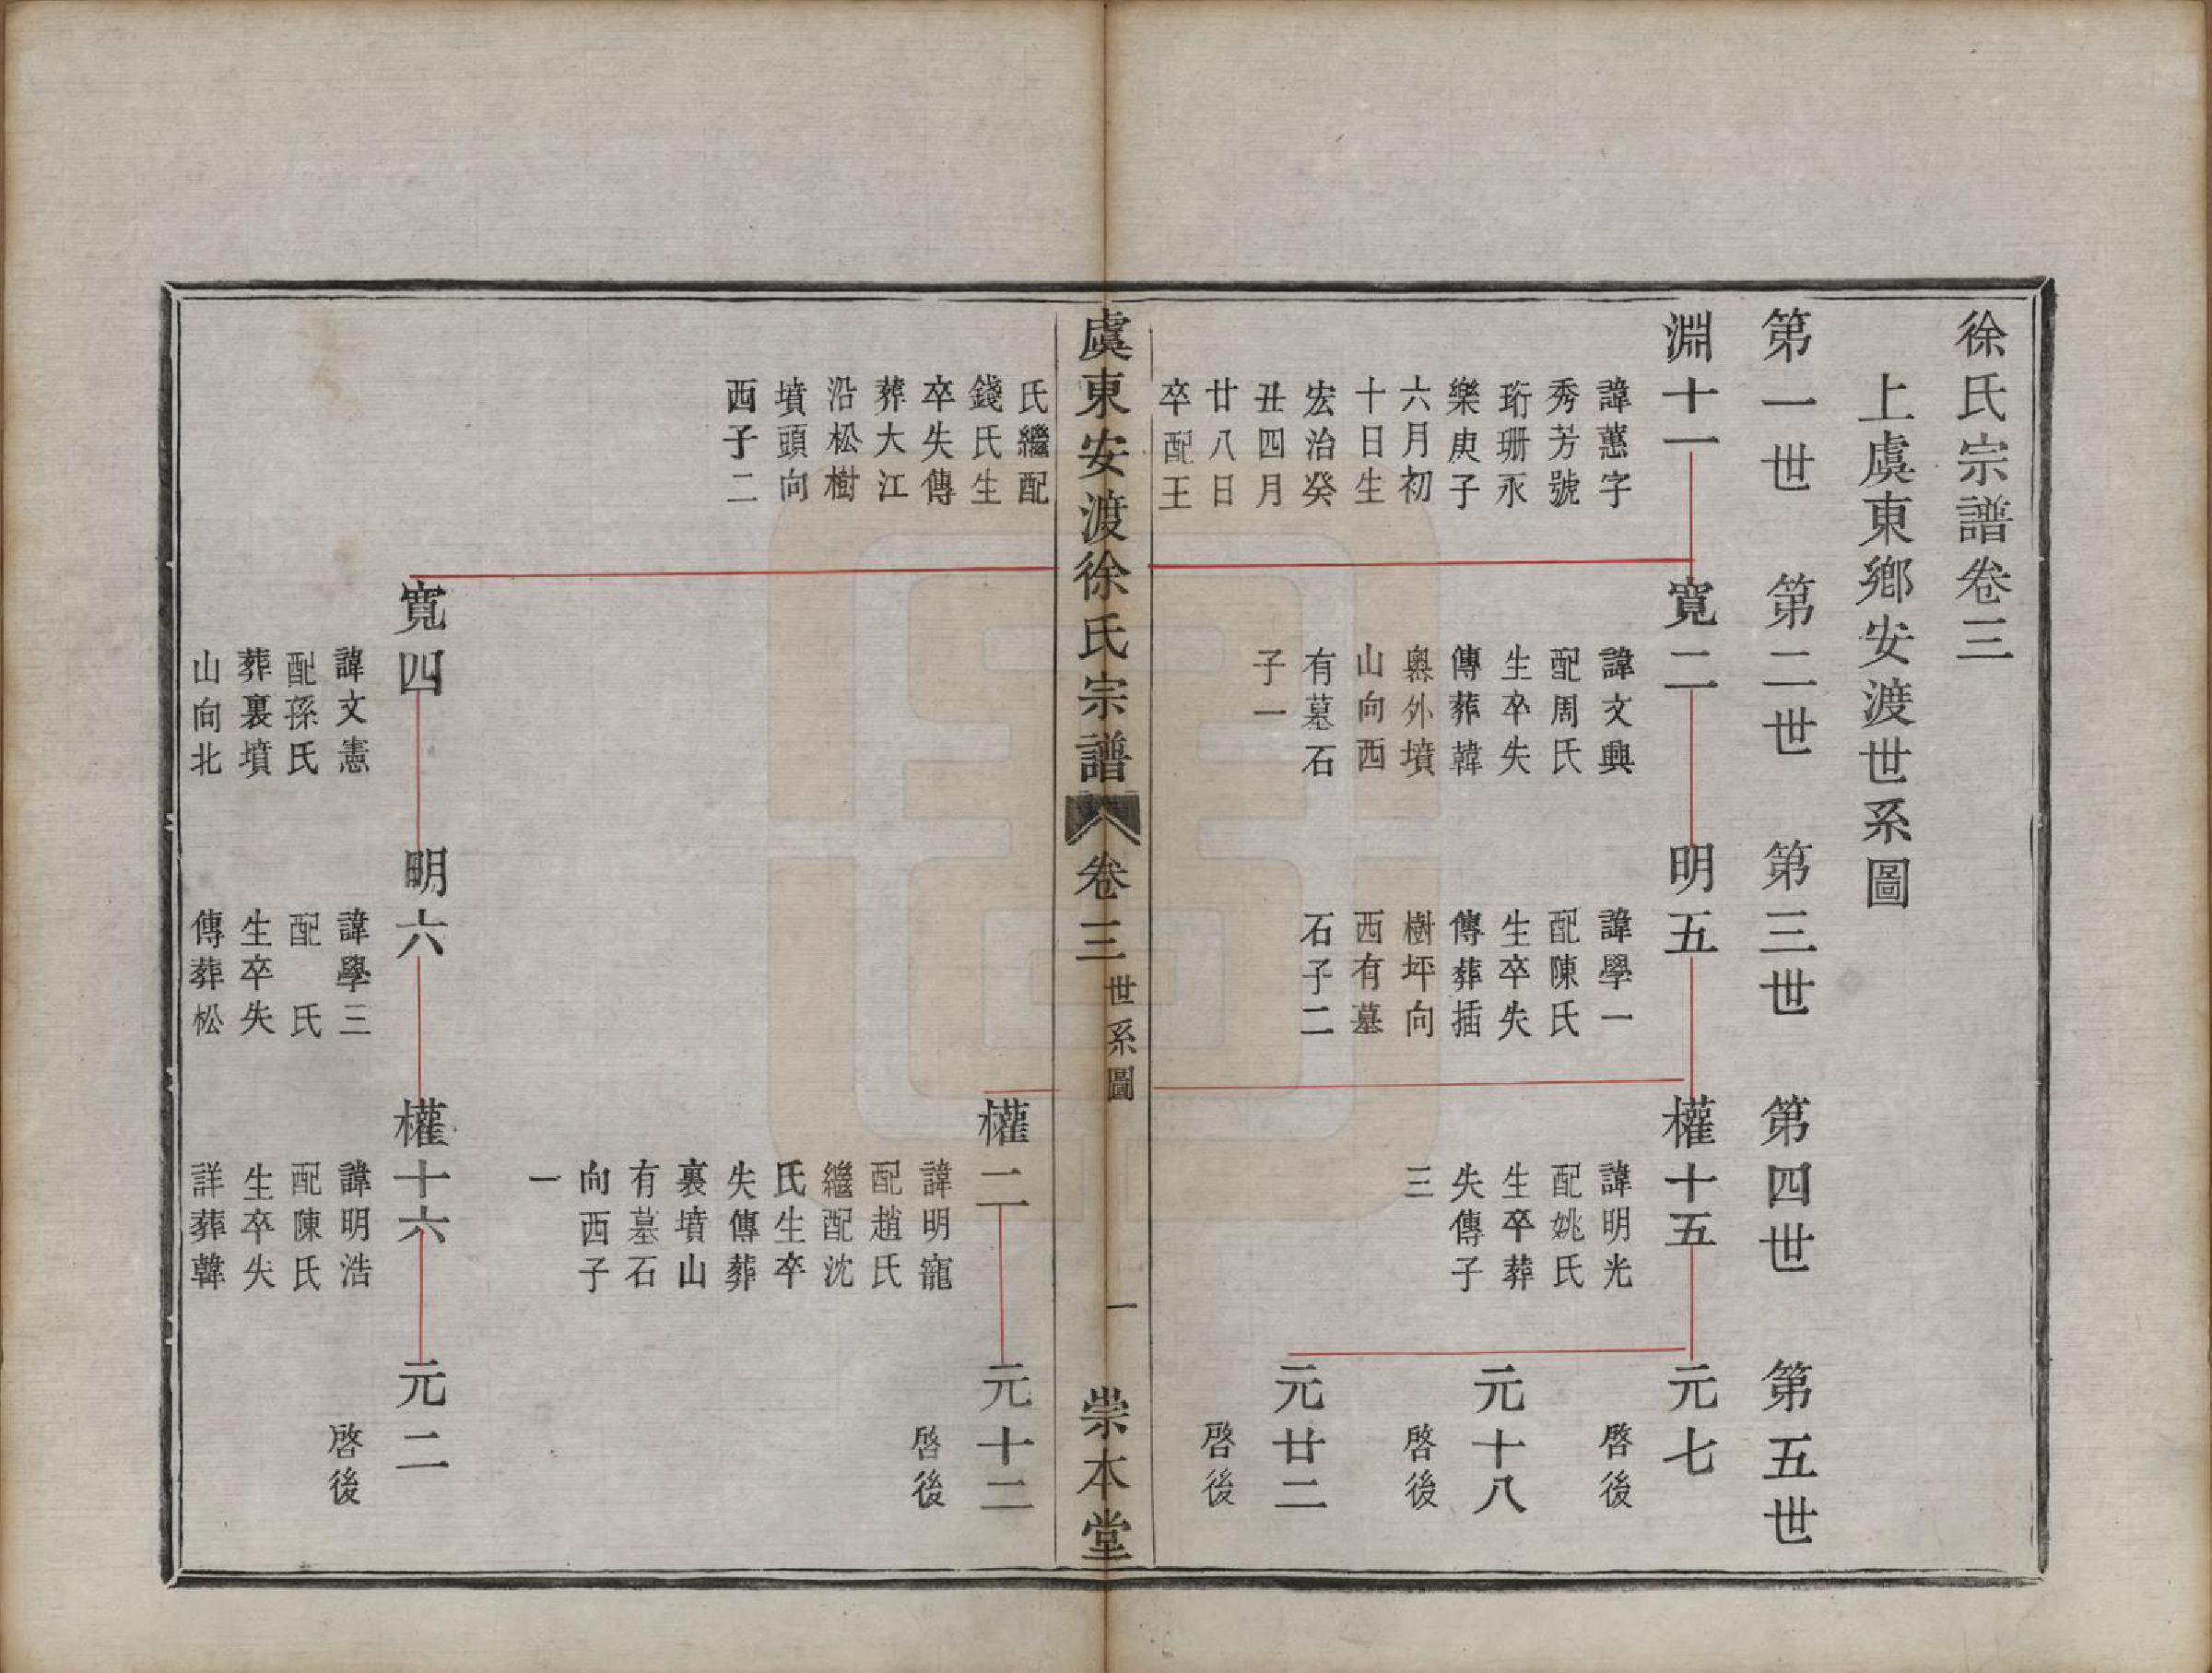 徐氏宗譜卷三
上虞東鄉安渡世系圖
第一世
第二世
第三世
第四世
第五世
淵十一
諱蕙字
秀芳號
珩珊永
樂庚子
六月初
十日生
宏治癸
丑四月
廿八日
卒配王
氏繼配
錢氏生
卒失傳
葬大江
沿松樹
墳頭向
西子二
寬二
諱文興
配周氏
生卒失
傳葬韓
奧外墳
山向西
有墓石
子一
明五
諱學一
配陳氏
生卒失
傳葬插
樹坪向
西有墓
石子二
權十五
諱明光
配姚氏
生卒葬
失傳子
三
元七
啓後
元十八
啓後
元廿二
啓後
虞東安渡徐氏宗譜
卷三
世系圖
一
崇本堂
權二
諱明寵
配趙氏
繼配沈
氏生卒
失傳葬
裏墳山
有墓石
向西子
一
元十二
啓後
寬四
諱文憲
配孫氏
葬裏墳
山向北
明六
諱學三
配　氏
生卒失
傳葬松
權十六
諱明浩
配陳氏
生卒失
詳葬韓
元二
啓後